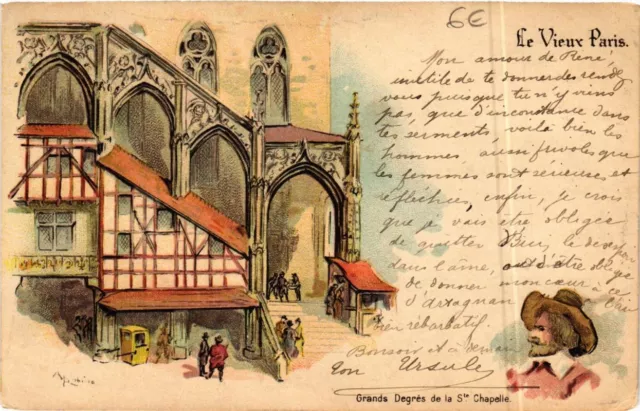 6€
Le Vieux Paris.
Mon amour de René,
inutile de te donner des rendez
vous puisque tu n'y viens
pas, que d'inconstance dans
tes serments voilà bien les
hommes, aussi frivoles que
les femmes sont sérieuses et
réfléchies, enfin, je crois
que je vais être obligée
de quitter le
dans l'âme, d'être obligée
de donner mon cœur à ce
d'Artagnan
rébarbatif.
Bonsoir et à demain
ton Ursule
Grands Degrés de la Ste Chapelle.